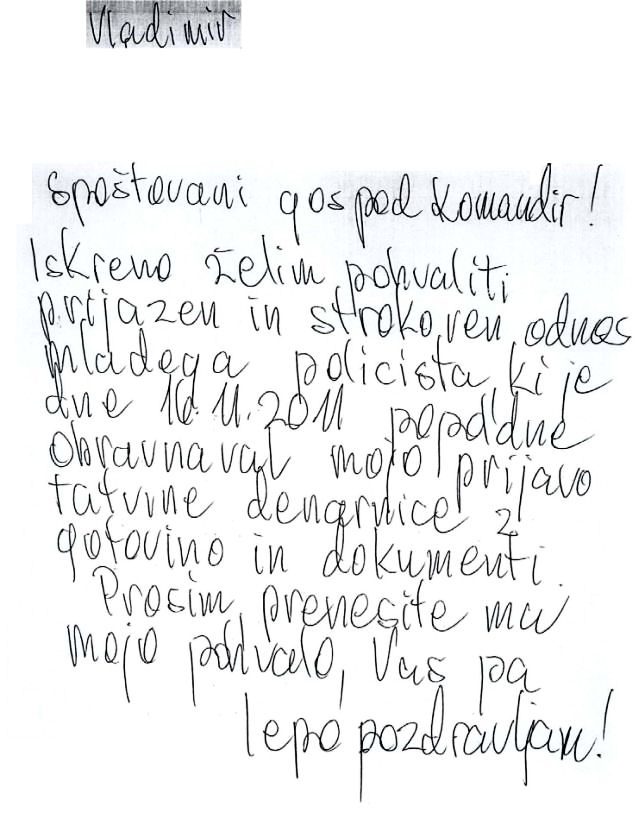 Vladimir
Spoštovani gospod komandir!
Iskreno želim pohvaliti
prijazen in strokoven odnos
mladega policista, ki je
dne 16.11.2011 popoldne
obravnaval mojo prijavo
tatvine denarnice z
gotovino in dokumenti.
Prosim, prenesite mu
mojo pohvalo, Vas pa
lepo pozdravljam!